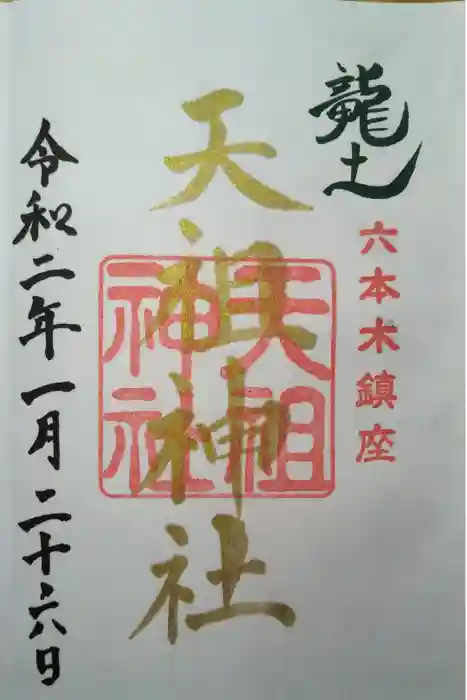 龍土
六本木鎮座
天祖神社
天祖
神社
令和二年一月二十六日